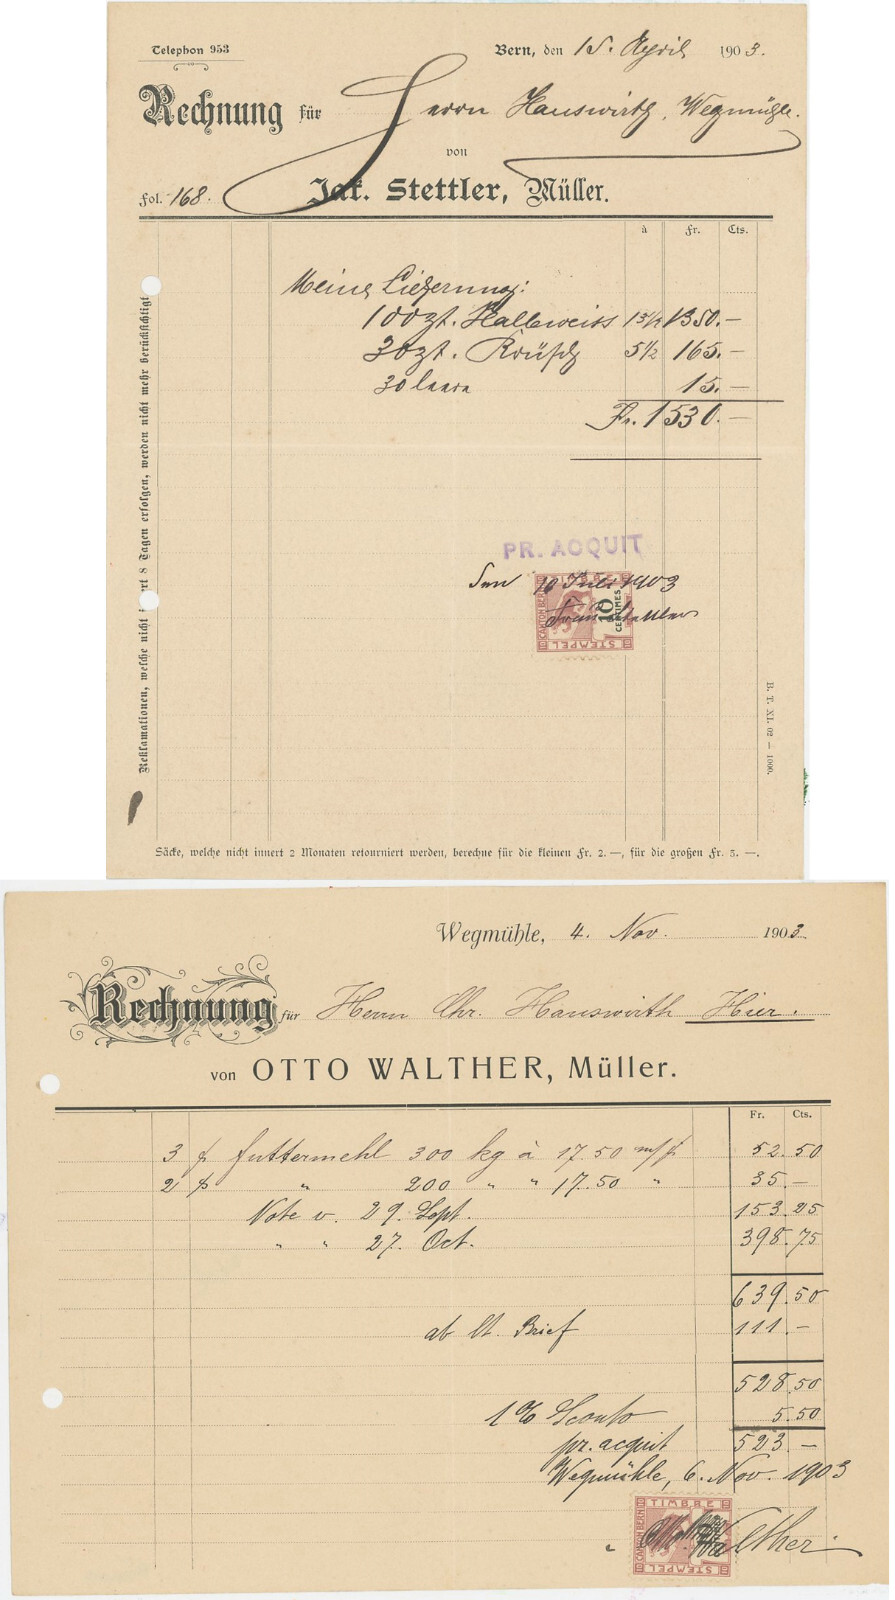 Telephon 953
Bern, den 15. April 1903.
Rechnung für Herrn Hauswirth, Wegmühle.
von
Fol. 168. Jak. Stettler, Müller.
à Fr. Cts.
Meine Lieferung:
100 zt. Halbweiss 13½ 1350.—
30 zt. Krüsch 5½ 165.—
30 laara 15.—
Fr. 1530.—
PR. ACQUIT
Den 10 Juli 1903
Stettler
TIMBRE
CANTON BERN
10
CENTIMES
STEMPEL
Reklamationen, welche nicht innert 8 Tagen erfolgen, werden nicht mehr berücksichtigt
B. T. XI. 02 — 1000.
Säcke, welche nicht innert 2 Monaten retourniert werden, berechne für die kleinen Fr. 2.—, für die großen Fr. 3.—.
Wegmühle, 4. Nov. 1903.
Rechnung für Herrn Chr. Hauswirth Hier.
von OTTO WALTHER, Müller.
Fr. Cts.
3 f Futtermehl 300 kg à 17.50 52.50
2 f " 200 " " 17.50 " 35.—
Note v. 29. Sept. 153.25
" " 27. Oct. 398.75
639.50
ab lt. Brief 111.—
528.50
1% Sconto 5.50
pr. acquit 523.—
Wegmühle, 6. Nov. 1903
TIMBRE
CANTON BERN
STEMPEL
Otto Walther.